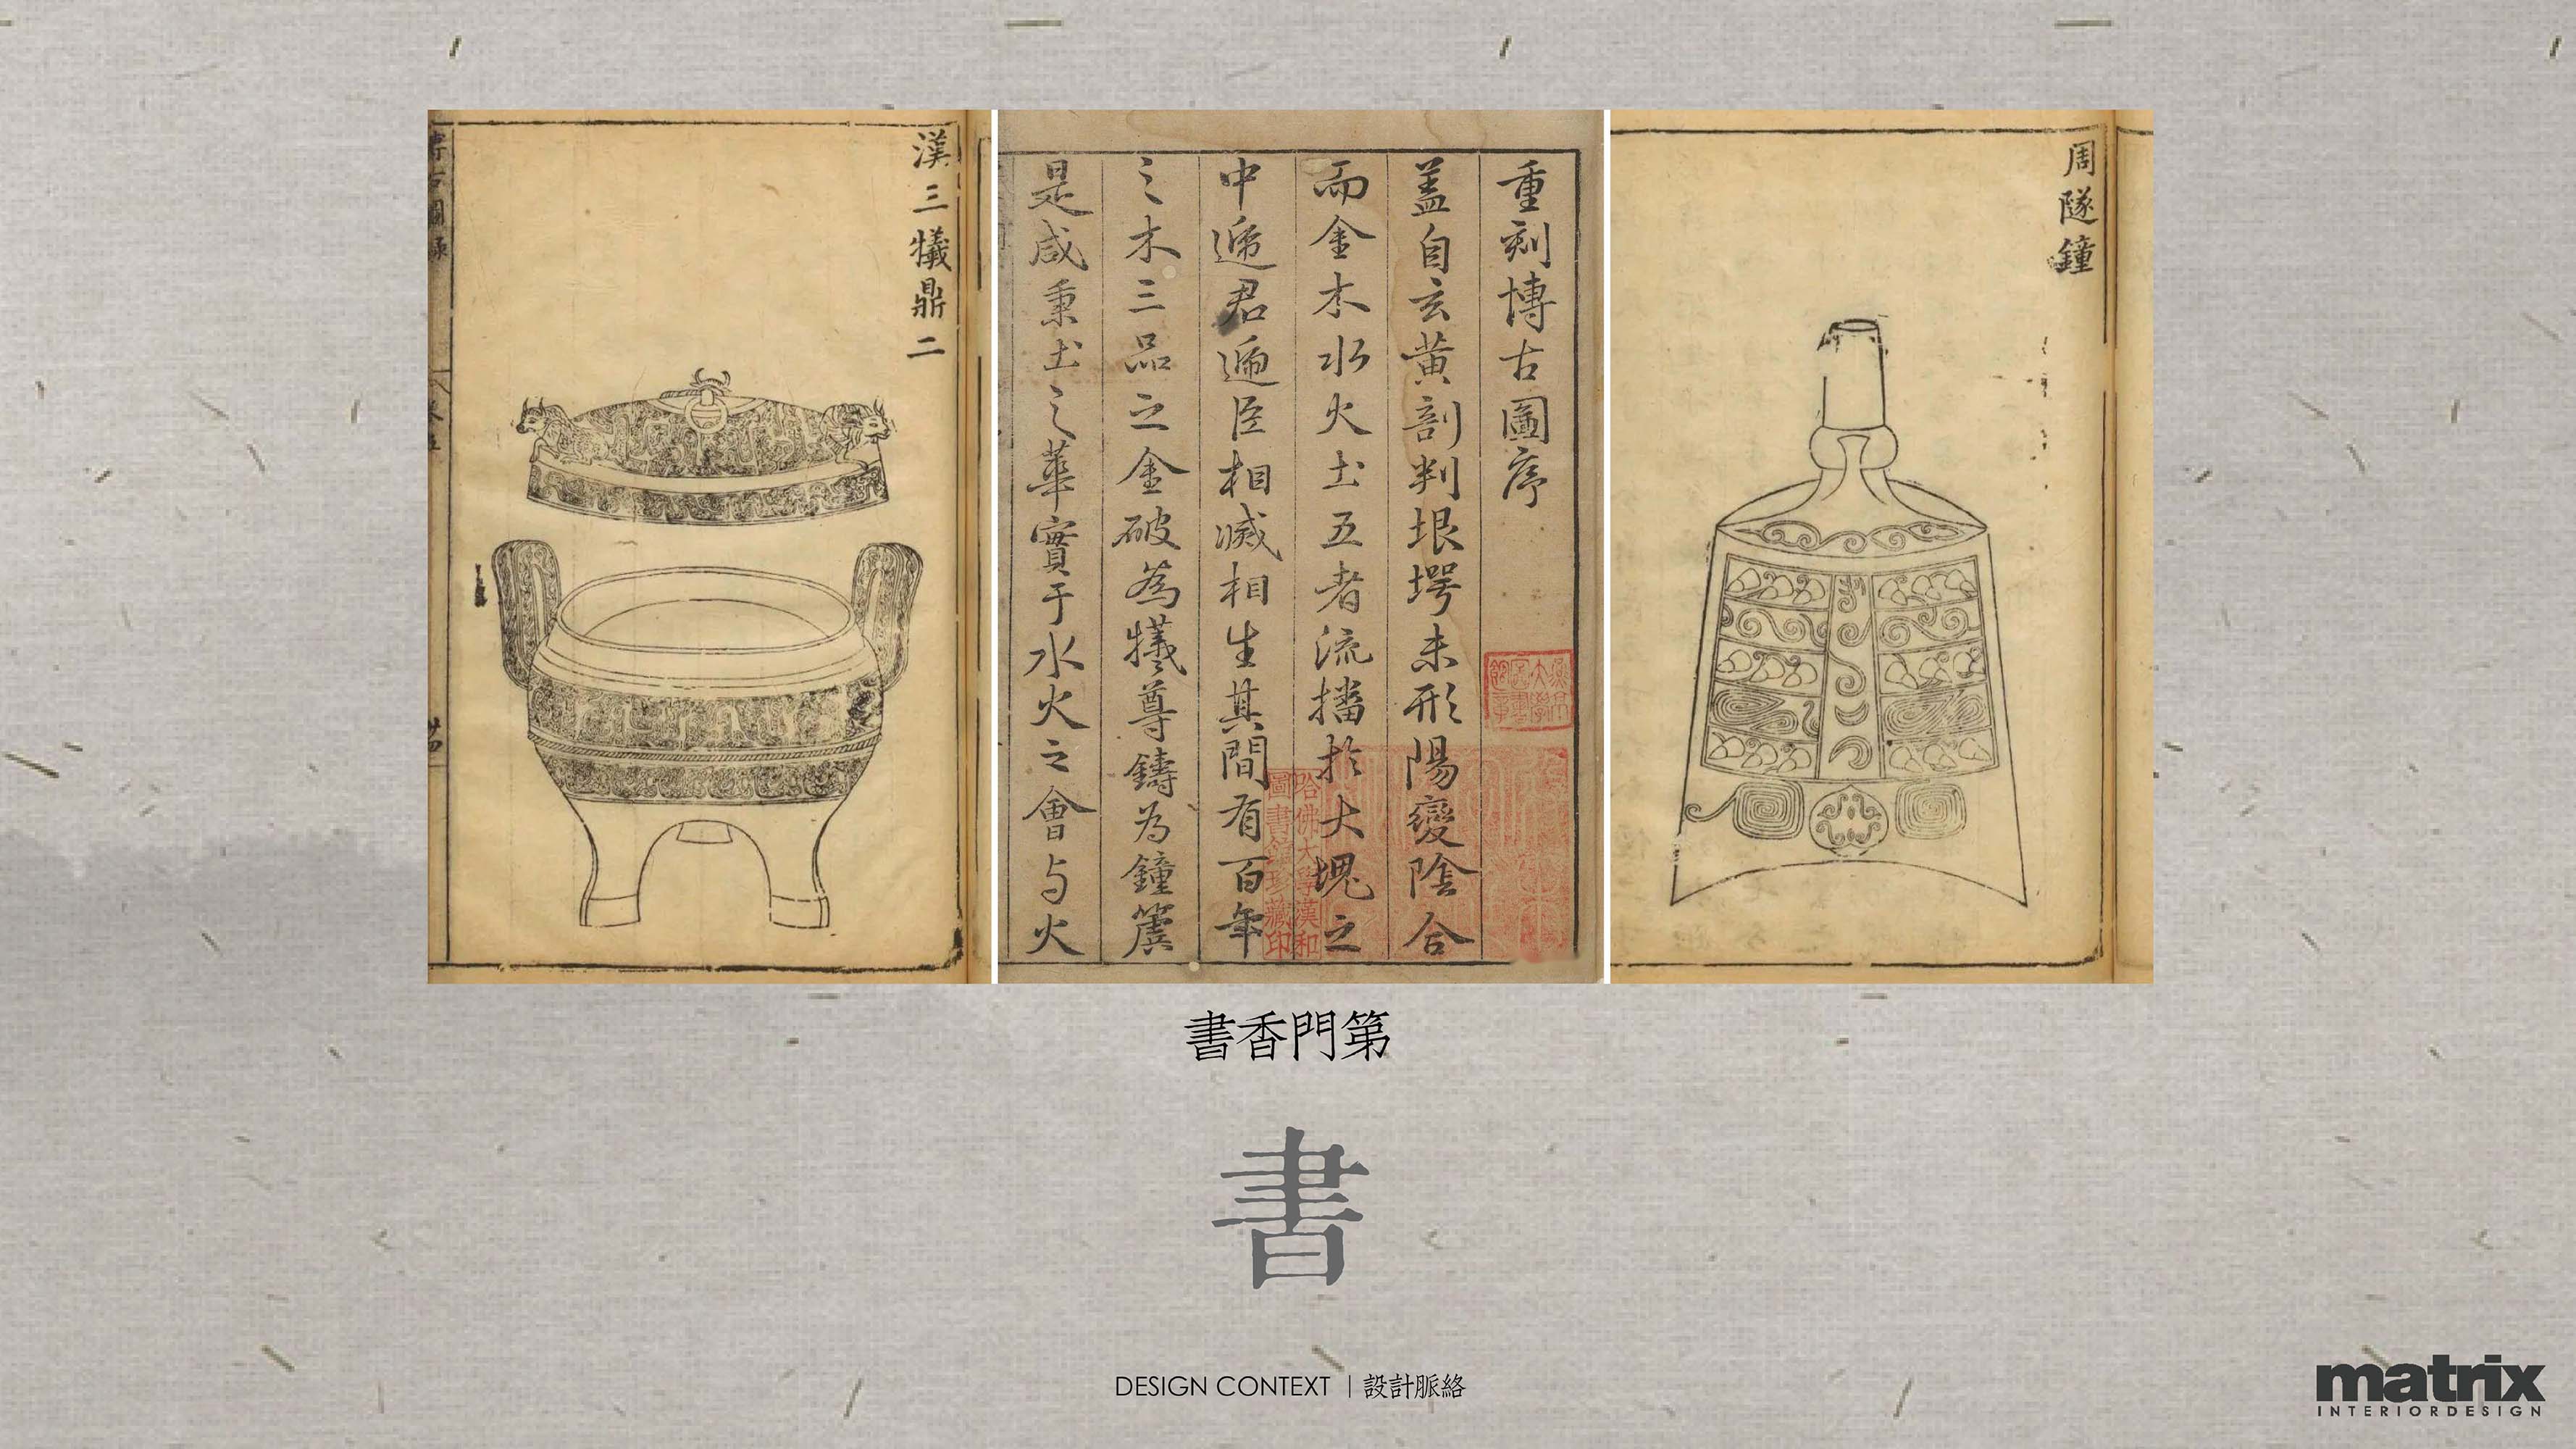 漢三犧鼎二
重刻博古圖序
蓋自玄黄剖判垠堮未形陽變陰合
而金木水火土五者流播於大塊之
中遞君遞臣相滅相生其間有百年
之木三品之金破為犧尊鑄為鐘簴
是咸秉土之華實于水火之會与火
哈佛大學漢和
圖書館珍藏印
周隧鐘
書香門第
書
DESIGN CONTEXT | 設計脈絡
matrix
INTERIOR DESIGN